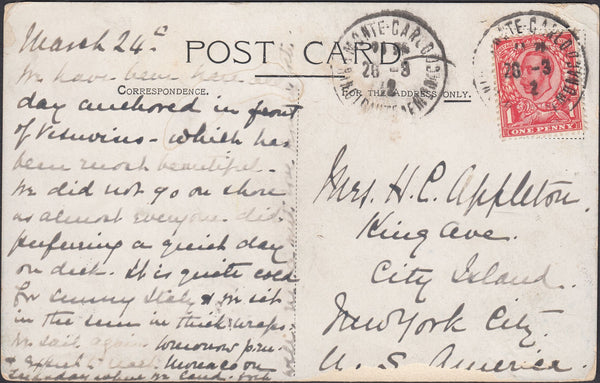 March 24th
POST CARD
MONTE-CARLO
28 -3
12
MONTE-CARLO
28 -3
12
ONE PENNY
CORRESPONDENCE.
FOR THE ADDRESS ONLY.
We have been here
day anchored in front
of Vesuvius - which has
been most beautiful.
We did not go on shore
as almost everyone did
preferring a quiet day
on deck. It is quite cold
for sunny Italy & we sit
in the sun in thick wraps
We sail again tomorrow
& expect to reach Monaco on
where we land.
Mrs. H. C. Appleton.
King Ave.
City Island.
New York City.
U. S. America.